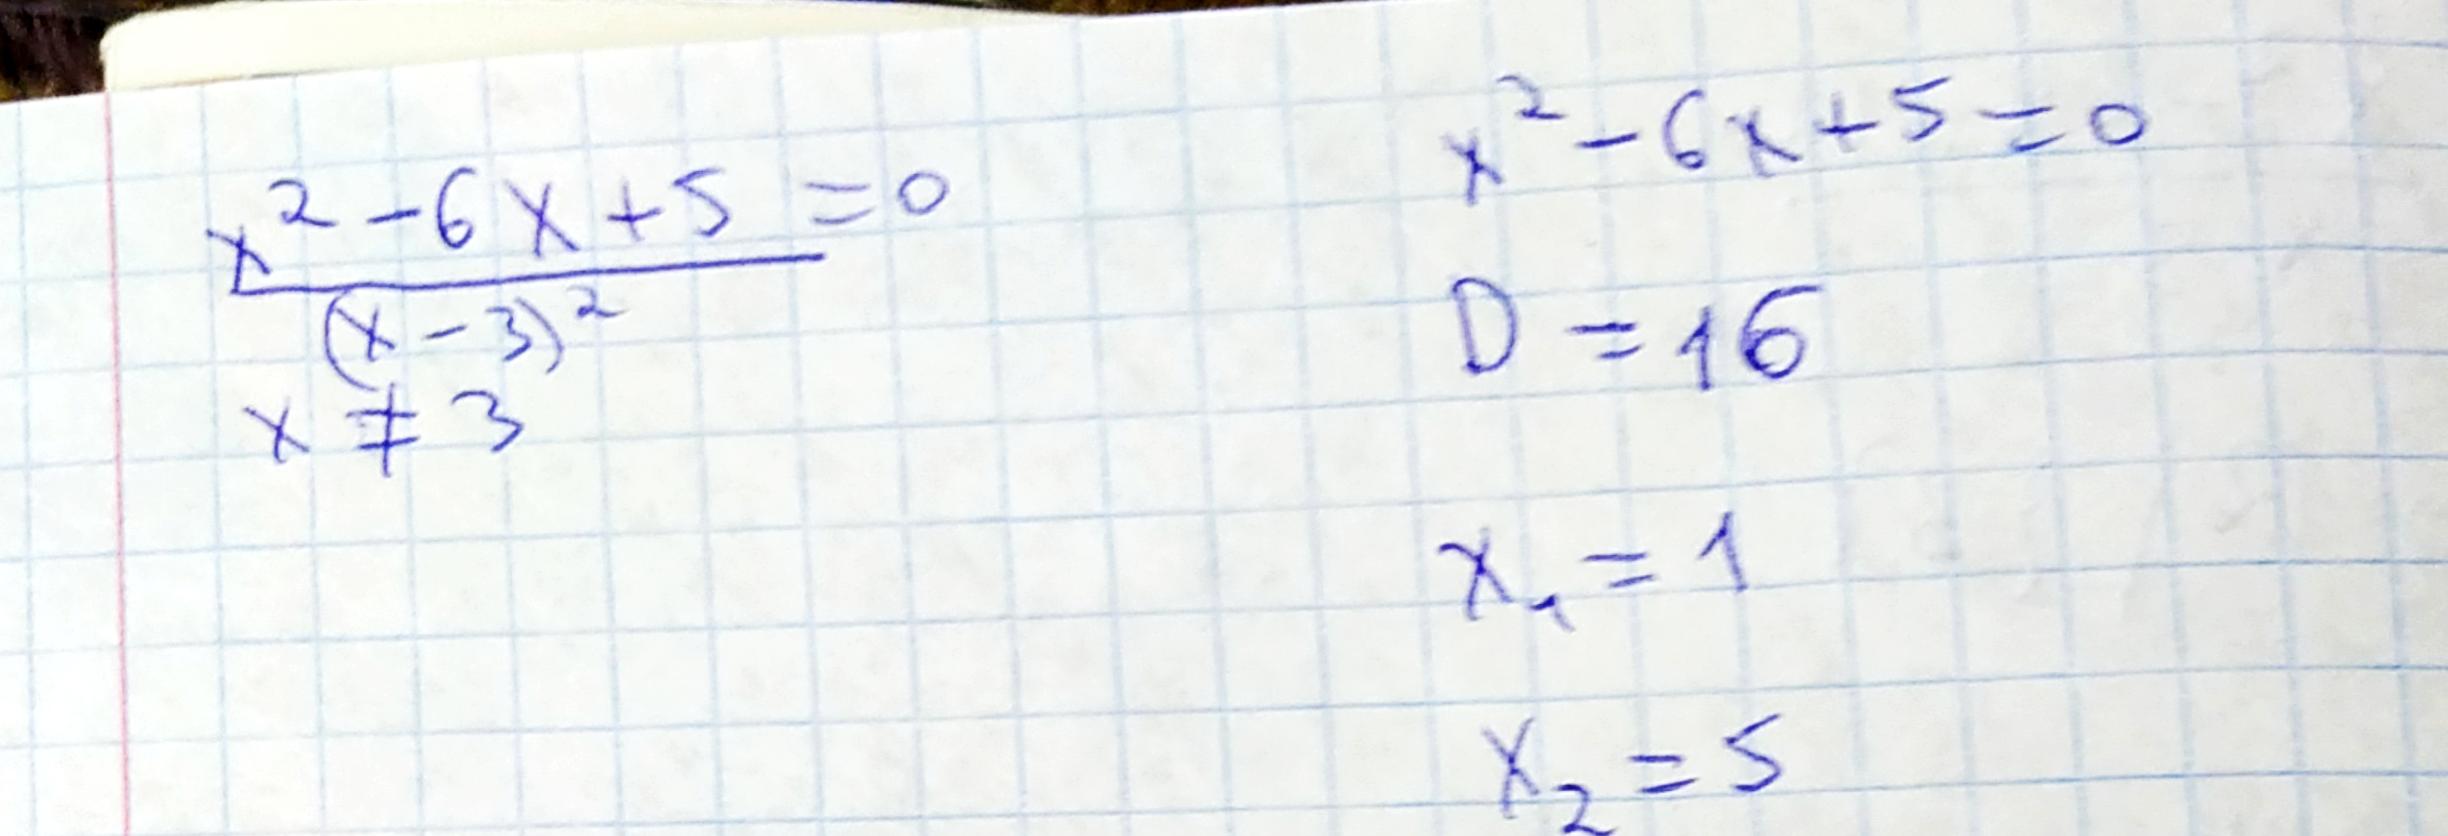 x² - 6x + 5 = 0
(x - 3)²
x ≠ 3
x² - 6x + 5 = 0
D = 16
x₁ = 1
x₂ = 5